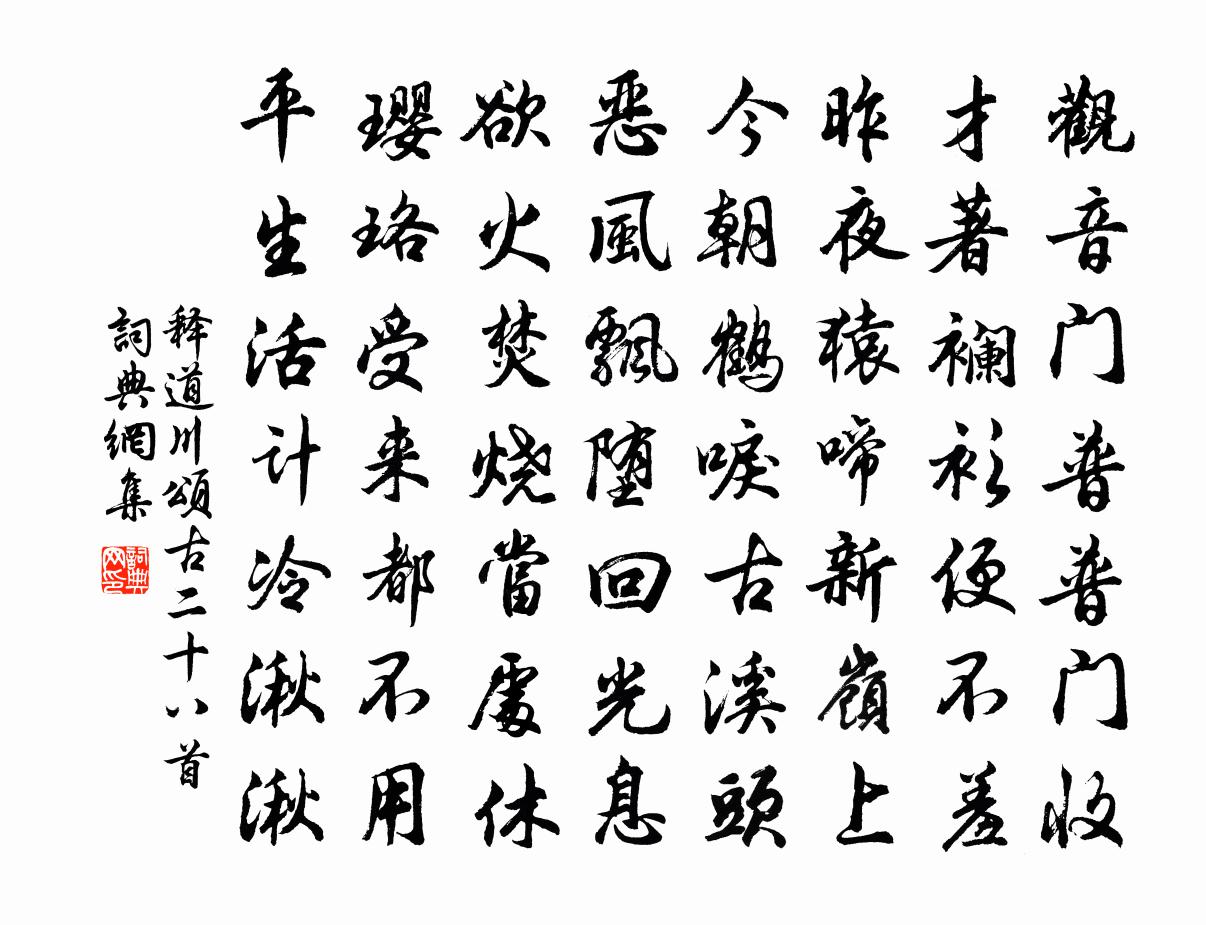 觀音门普普门收
才著襴衫便不羞
昨夜猿啼新嶺上
今朝鹤唳古溪頭
恶風飄堕回光息
欲火焚烧當處休
璎珞受来都不用
平生活计冷湫湫
释道川頌古二十八首
詞典網集
詞典网印